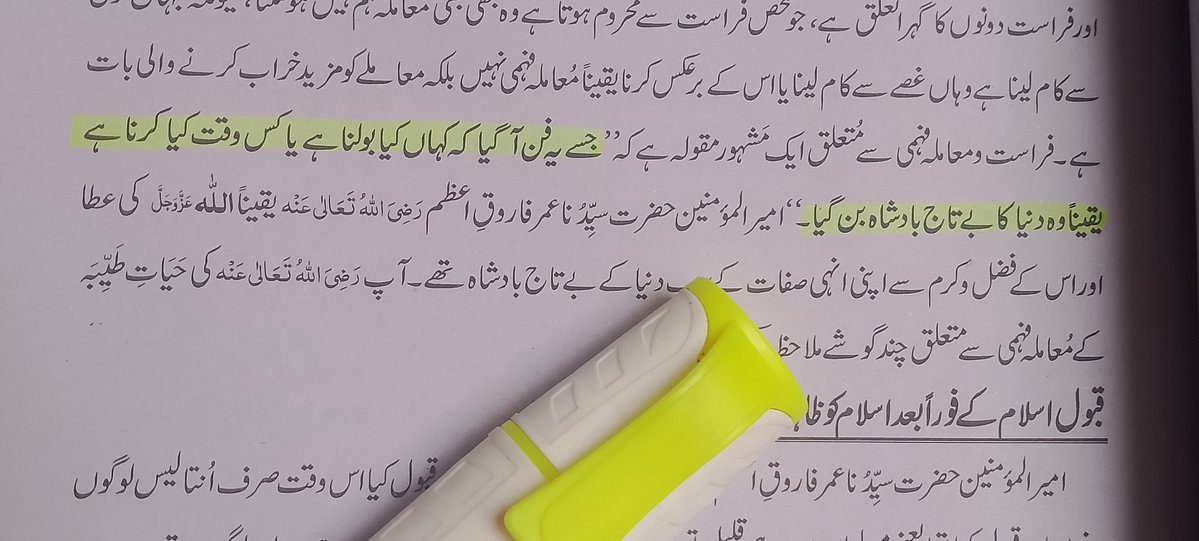 اورفراست دونوں کا گہرا تعلق ہے، جو شخص فراست سے محروم ہوتا ہے وہ کبھی بھی معاملہ فہم نہیں ہوسکتا،
سے کام لینا ہے وہاں غصے سے کام لینا یا اس کے برعکس کرنا یقیناً مُعاملہ فہمی نہیں بلکہ معاملے کو مزید خراب کرنے والی بات
ہے۔فراست و معاملہ فہمی سے مُتعلق ایک مَشہور مقولہ ہے کہ ’’جسے یہ فن آ گیا کہ کہاں کیا بولنا ہے یا کس وقت کیا کرنا ہے
یقیناً وہ دنیا کا بے تاج بادشاہ بن گیا۔‘‘ امیر المؤمنین حضرت سیِّدُنا عمر فاروقِ اعظم رَضِیَ اللّٰہُ تَعَالٰی عَنْہ یقیناً اللّٰہ عَزَّوَجَلَّ کی عطا
اور اس کے فضل وکرم سے اپنی انہی صفات کے دنیا کے بے تاج بادشاہ تھے۔آپ رَضِیَ اللّٰہُ تَعَالٰی عَنْہ کی حَیَاتِ طَیِّبَہ
کے مُعاملہ فہمی سے متعلق چند گوشے
قبول اسلام کے فوراً بعد اسلام کو
امیر المؤمنین حضرت سیِّدُنا عمر فاروقِ قبول کیا اس وقت صرف اُنتالیس لوگوں